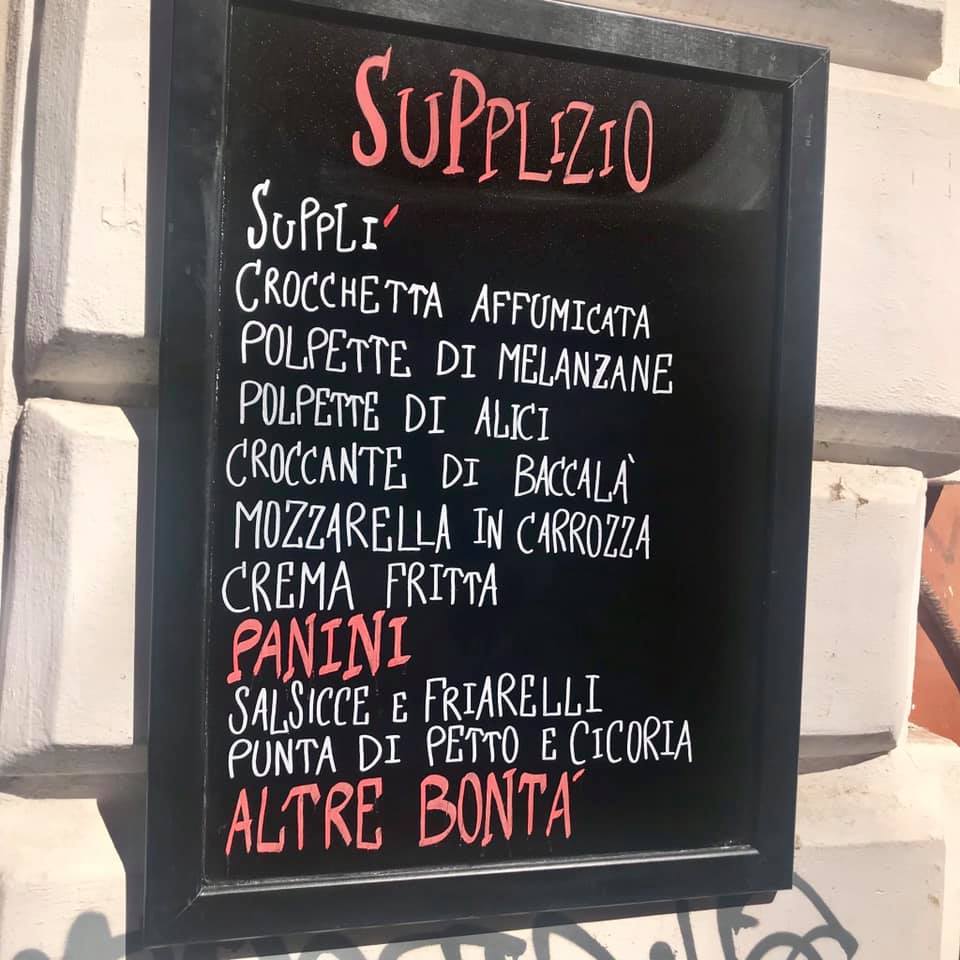 SUPPLIZIO
SUPPLI´
CROCCHETTA AFFUMICATA
POLPETTE DI MELANZANE
POLPETTE DI ALICI
CROCCANTE DI BACCALÀ
MOZZARELLA IN CARROZZA
CREMA FRITTA
PANINI
SALSICCE E FRIARELLI
PUNTA DI PETTO E CICORIA
ALTRE BONTÁ